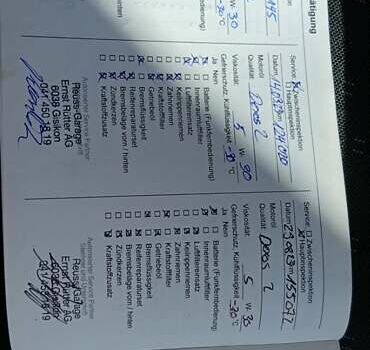 ätigung
Service: Zwischeninspektion
Hauptinspektion
Datum 14.03.2 km 124000
Motoröl
Qualität: Dexos 2
Viskosität: 5 W- 30
Gefrierschutz, Kühlflüssigkeit -30 °C
Ja Nein
Batterie (Funkfernbedienung)
Innenraumluftfilter
Luftfiltereinsatz
Keilrippenriemen
Zahnriemen
Kraftstofffilter
Getriebeöl
Bremsflüssigkeit
Reifenreparaturset
Bremsbeläge vorn / hinten
Zündkerzen
Kraftstoffzusatz
Autorisierter Service Partner
Reuss-Garage
Ernst Rütter AG
6038 Gisikon
041 450 18 19
Service: Zwischeninspektion
Hauptinspektion
Motoröl
Qualität: Dexos 2
Viskosität: 5 W- 30
Gefrierschutz, Kühlflüssigkeit -30 °C
Ja Nein
Batterie (Funkfernbedienung
Innenraumluftfilter
Luftfiltereinsatz
Keilrippenriemen
Zahnriemen
Kraftstofffilter
Getriebeöl
Bremsflüssigkeit
Reifenreparaturset
Bremsbeläge vorn / hinten
Zündkerzen
Kraftstoffzusatz
Autorisierter Service Partner
Reuss-Garage
Ernst Rütter AG
6038 Gisikon